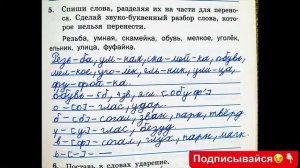 5. Спиши слова, разделяя их на части для перено-
са. Сделай звуко-буквенный разбор слова, кото-
рое нельзя перенести.
Резьба, умная, скамейка, обувь, мелкое, уголёк,
ельник, улица, фуфайка.
Резь-ба, ум-ная, ска-мей-ка, обувь,
мел-кое, уго-лёк, ель-ник, ули-ца,
фу-фай-ка.
обувь -
о-[о]- глас, удар
б-[б]- соглас, звон, парн, твёрд
у-[у]- глас, безуд
в-[ф']- соглас, глух, парн, мягк
ь-[-]-
6. Поставь в словах ударение.
Подписывайся